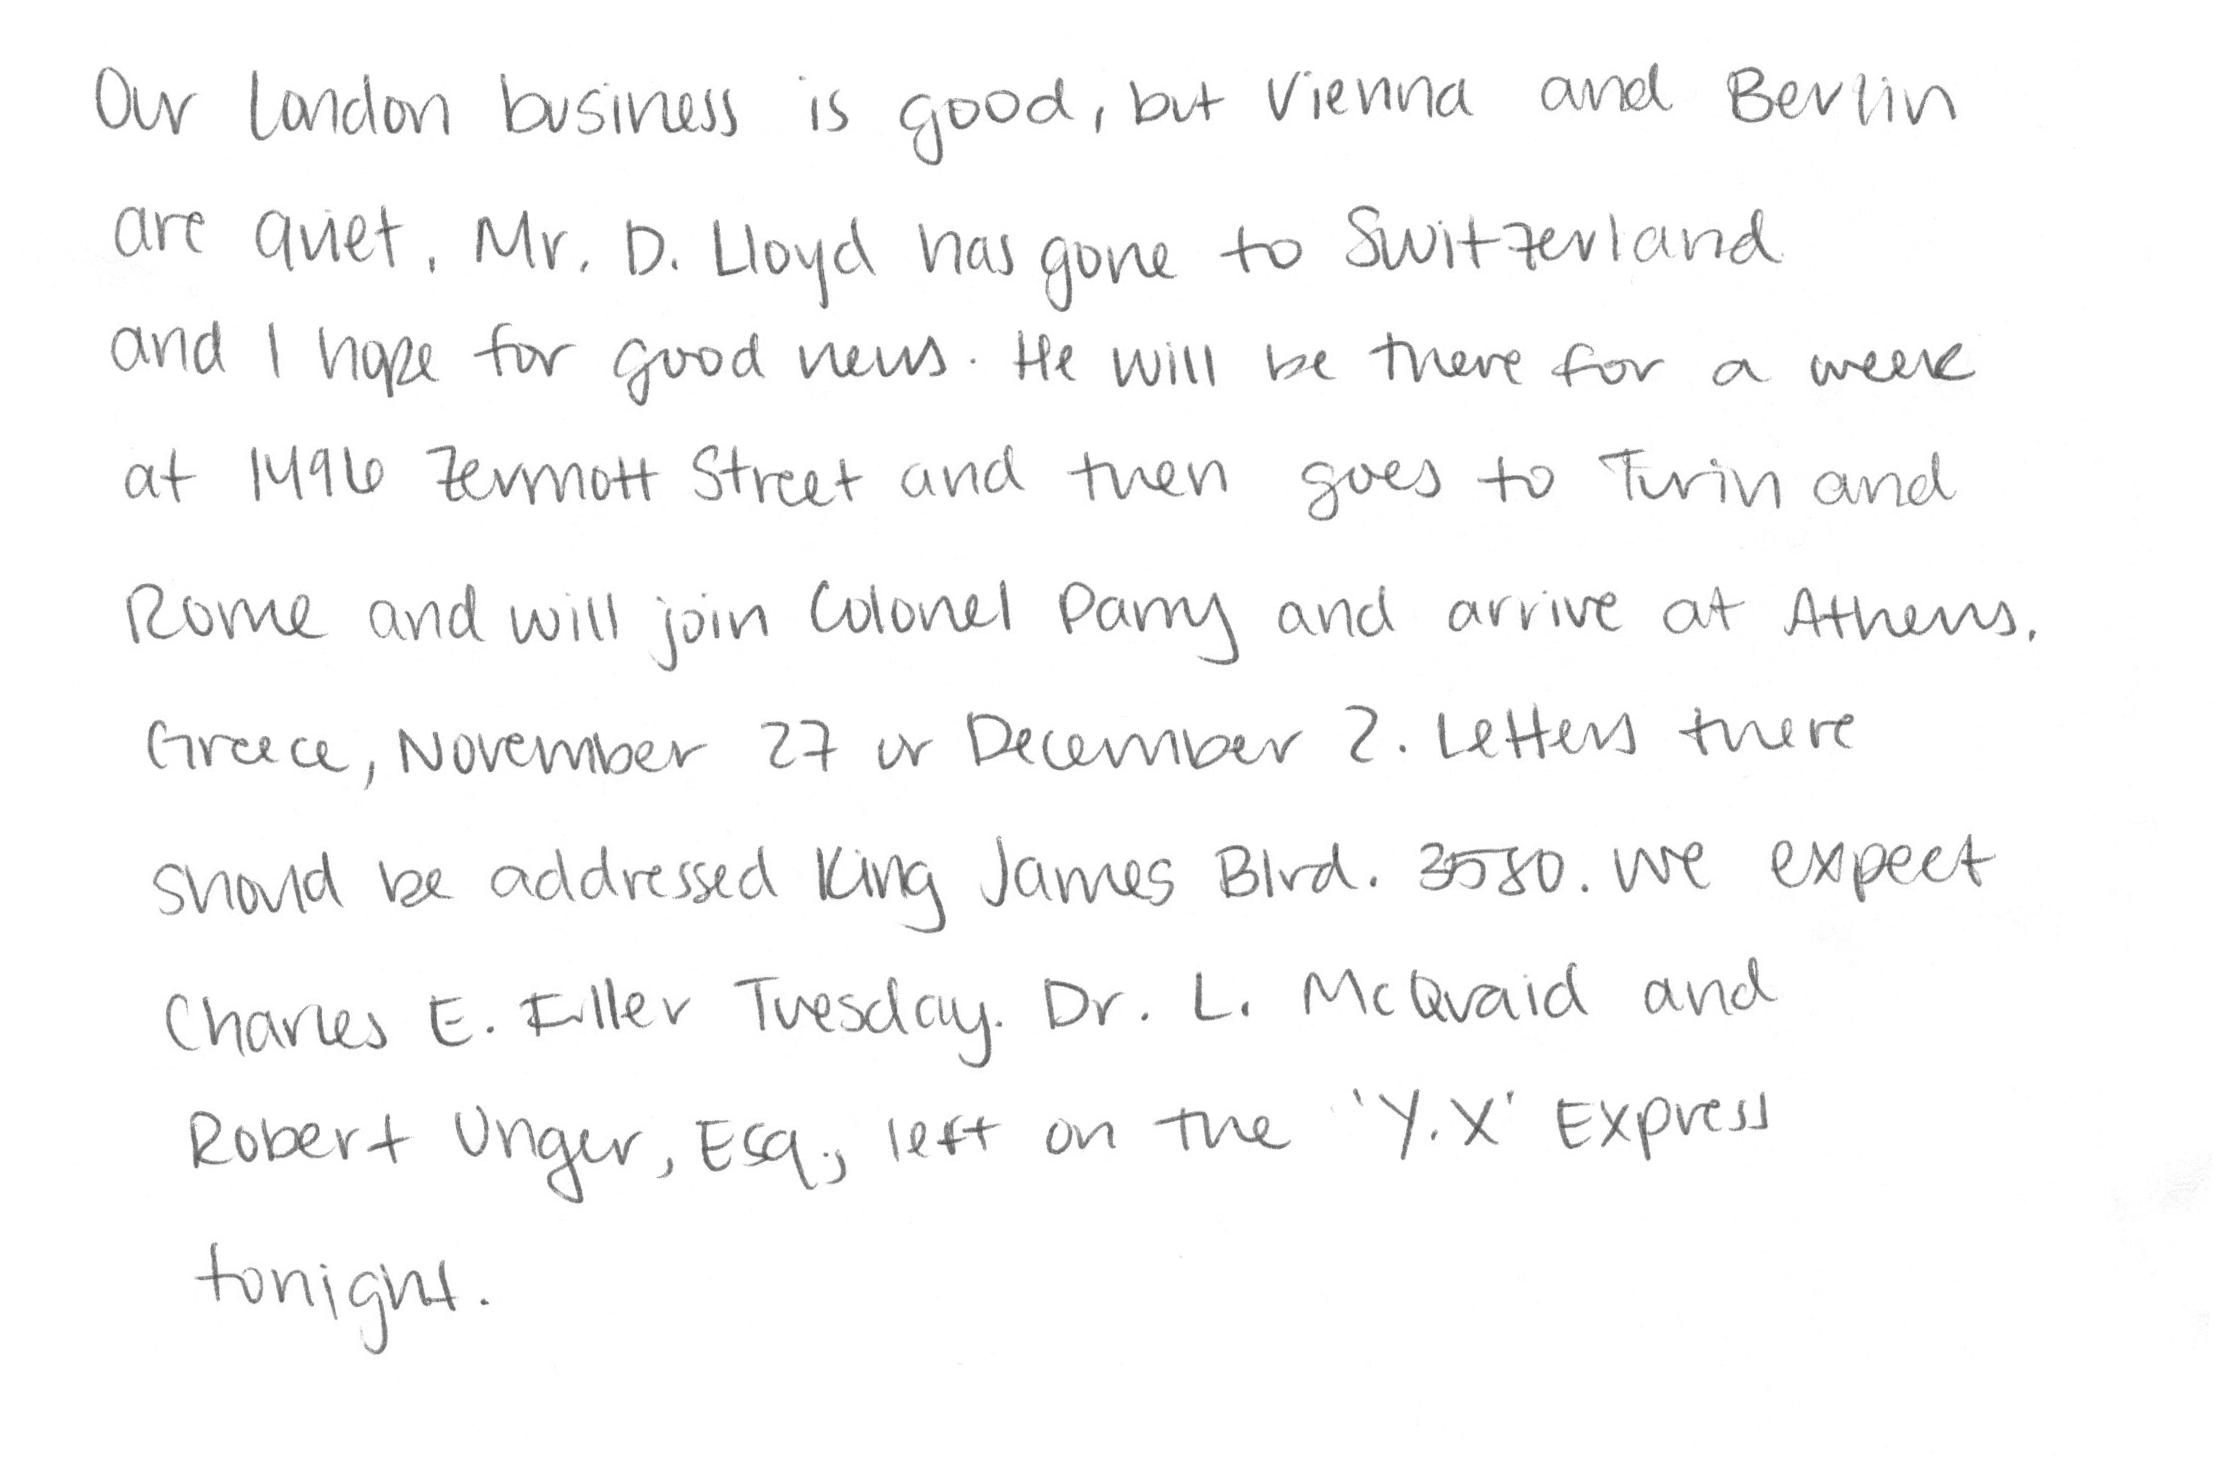 Our London business is good, but Vienna and Berlin
are quiet. Mr. D. Lloyd has gone to Switzerland
and I hope for good news. He will be there for a week
at 1496 Zermott Street and then goes to Turin and
Rome and will join Colonel Parry and arrive at Athens,
Greece, November 27 or December 2. Letters there
should be addressed King James Blvd. 3580. We expect
Charles E. Filler Tuesday. Dr. L. McQuaid and
Robert Unger, Esq., left on the 'Y.X' Express
tonight.